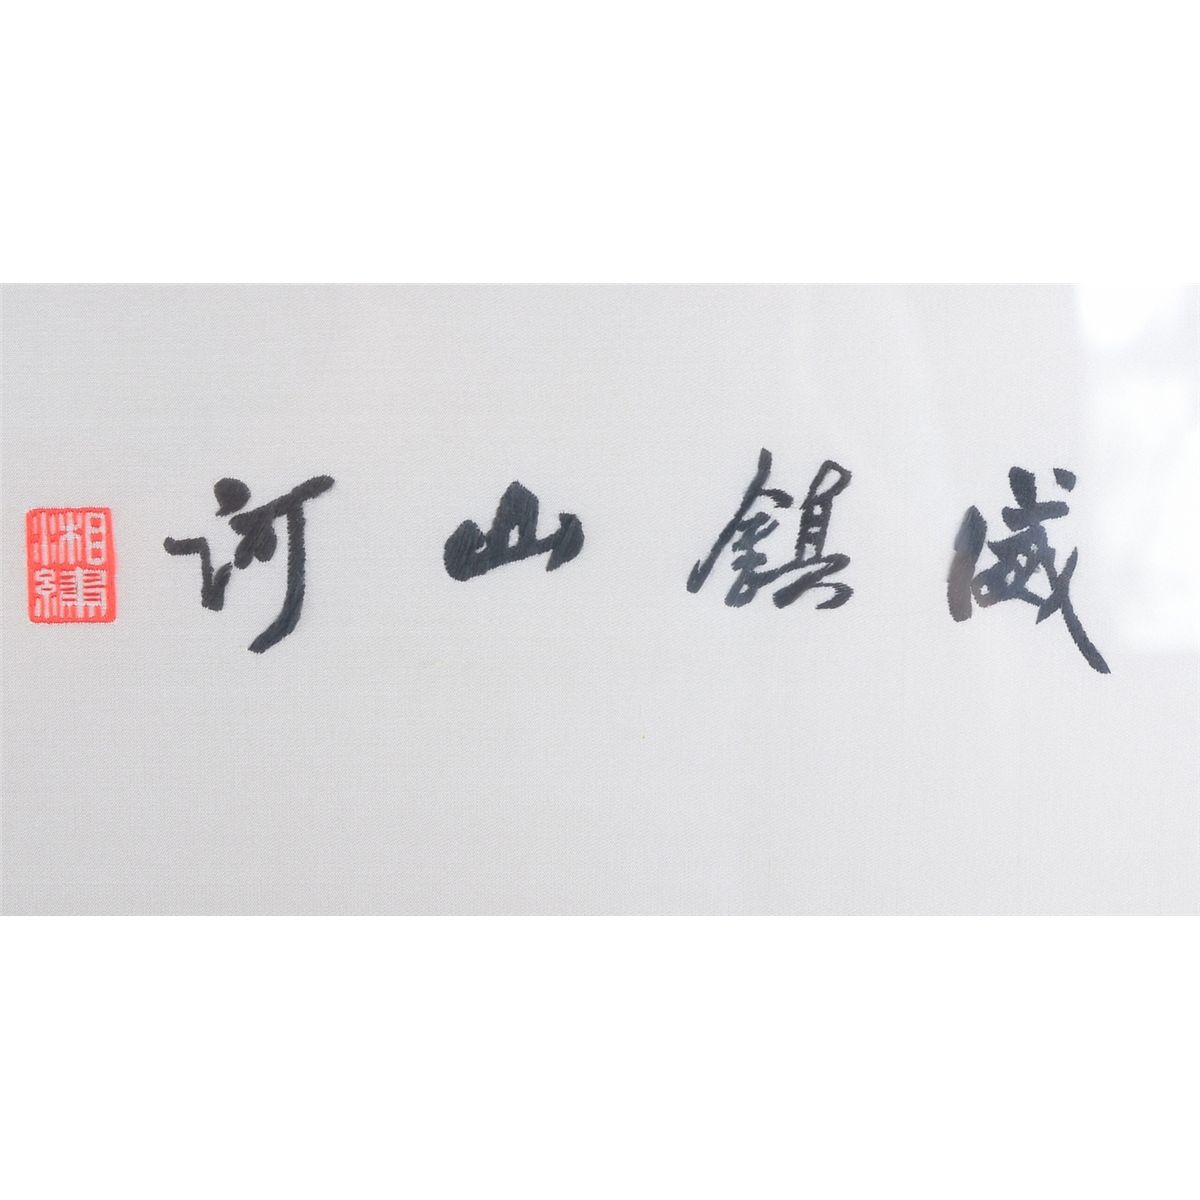 威鎮山河
湘繡